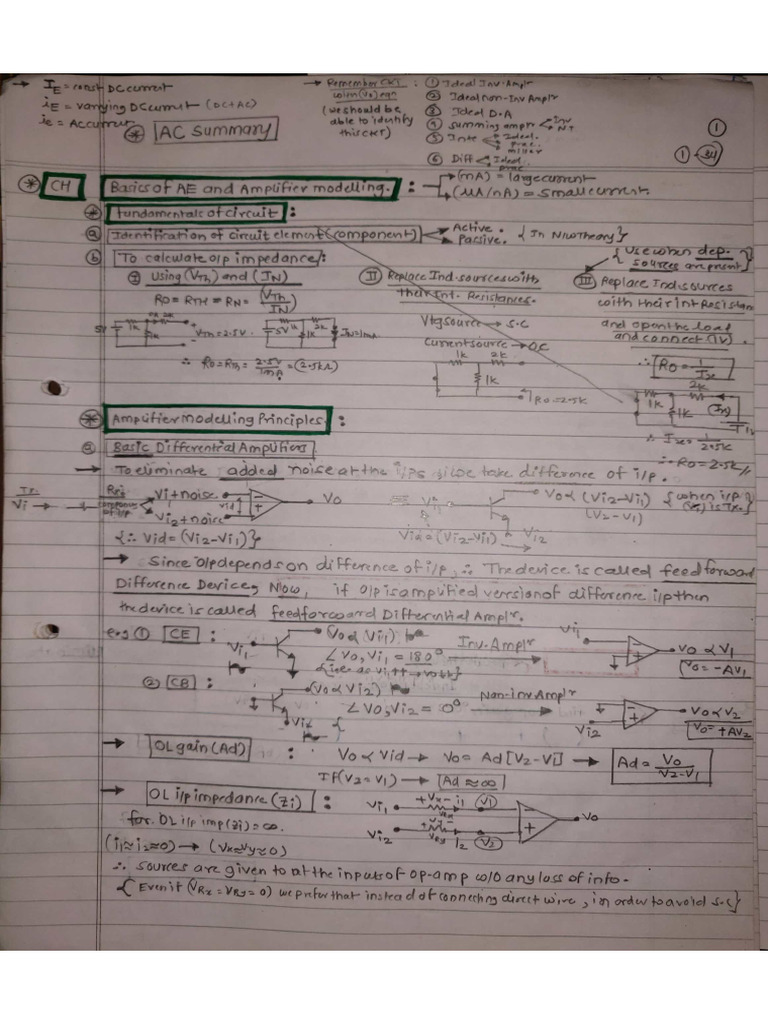 → IE = const DC current
iE = varying DC current (DC+AC)
ie = AC current
* AC Summary
→ Remember CKT with (Vo) eqn : (we should be able to identify this ckt)
① Ideal Inv. Amplr
② Ideal non-Inv Amplr
③ Ideal D.A
④ summing amplr < Inv NI
⑤ Inte < Ideal. prac. miller
⑥ Diff < Ideal. prac
①
①-34
* CH Basics of AE and Amplifier modelling. : → (mA) = large current
→ (μA/nA) = small current.
* fundamentals of circuit :
ⓐ Identification of circuit element (component) → Active. Passive. {In N/w Theory}
ⓑ To calculate o/p impedance/:
{Use when dep. sources are present}
Ⅰ Using (VTh) and (IN)
RO = RTH = RN = (VTh/IN)
5V 1k 2k VTh = 2.5V. 5V 1k 1k 2k IN = 1mA
∴ RO = RTh = 2.5V/1mA = (2.5kΩ)
Ⅱ Replace Ind. sources with their Int. Resistances.
Vtg source → S.C
Current source → O.C
1k 2k 1k RO = 2.5K
Ⅲ Replace Ind. sources with their int Resistan
and open the load and connect (1V).
∴ RO = 1/Ix
2k 1k 1k (Ix)
∴ Ix = 1/2.5K
∴ RO = 2.5K //
* Amplifier Modelling Principles. :
ⓐ Basic Differential Amplifiers
→ To eliminate added noise at the i/ps we take difference of i/p.
Tx. Vi Vi1+noise Vi2+noise Vid Vo
{∴ Vid = (Vi2-Vi1)}
Vi1 Vo ∝ (Vi2-Vi1) (V2-V1) Vi2
Vid = (Vi2-Vi1)
→ Since o/p depends on difference of i/p, ∴ The device is called feed forward
Difference Device, Now, if o/p is amplified version of difference i/p then
the device is called feedforward Differential Amplr.
e.g ① CE : Vi1 (Vo ∝ Vi1) ∠Vo,Vi1 = 180° Inv. Amplr → Vi1 Vo ∝ V1
Vo = -AV1
② CB : (Vo ∝ Vi2) ∠Vo,Vi2 = 0° Non-inv Amplr → Vi2 Vo ∝ V2
Vo = +AV2
→ OL gain (Ad) : Vo ∝ Vid → Vo = Ad [V2-V1] → Ad = Vo/V2-V1
If (V2 = V1) → Ad ≈ ∞
→ OL i/p impedance (Zi) : Vi1 +Vx- i1 (V1) Rx Vo
for OL i/p imp (Zi) = ∞. Vi2 Ry I2 (V2)
(i1 ≈ i2 ≈ 0) → (Vx ≈ Vy ≈ 0)
∴ sources are given to at the inputs of op-amp w/o any loss of info.
{Even if (VRx = VRy = 0) we prefer that instead of connecting direct wire, in order to avoid S.C}